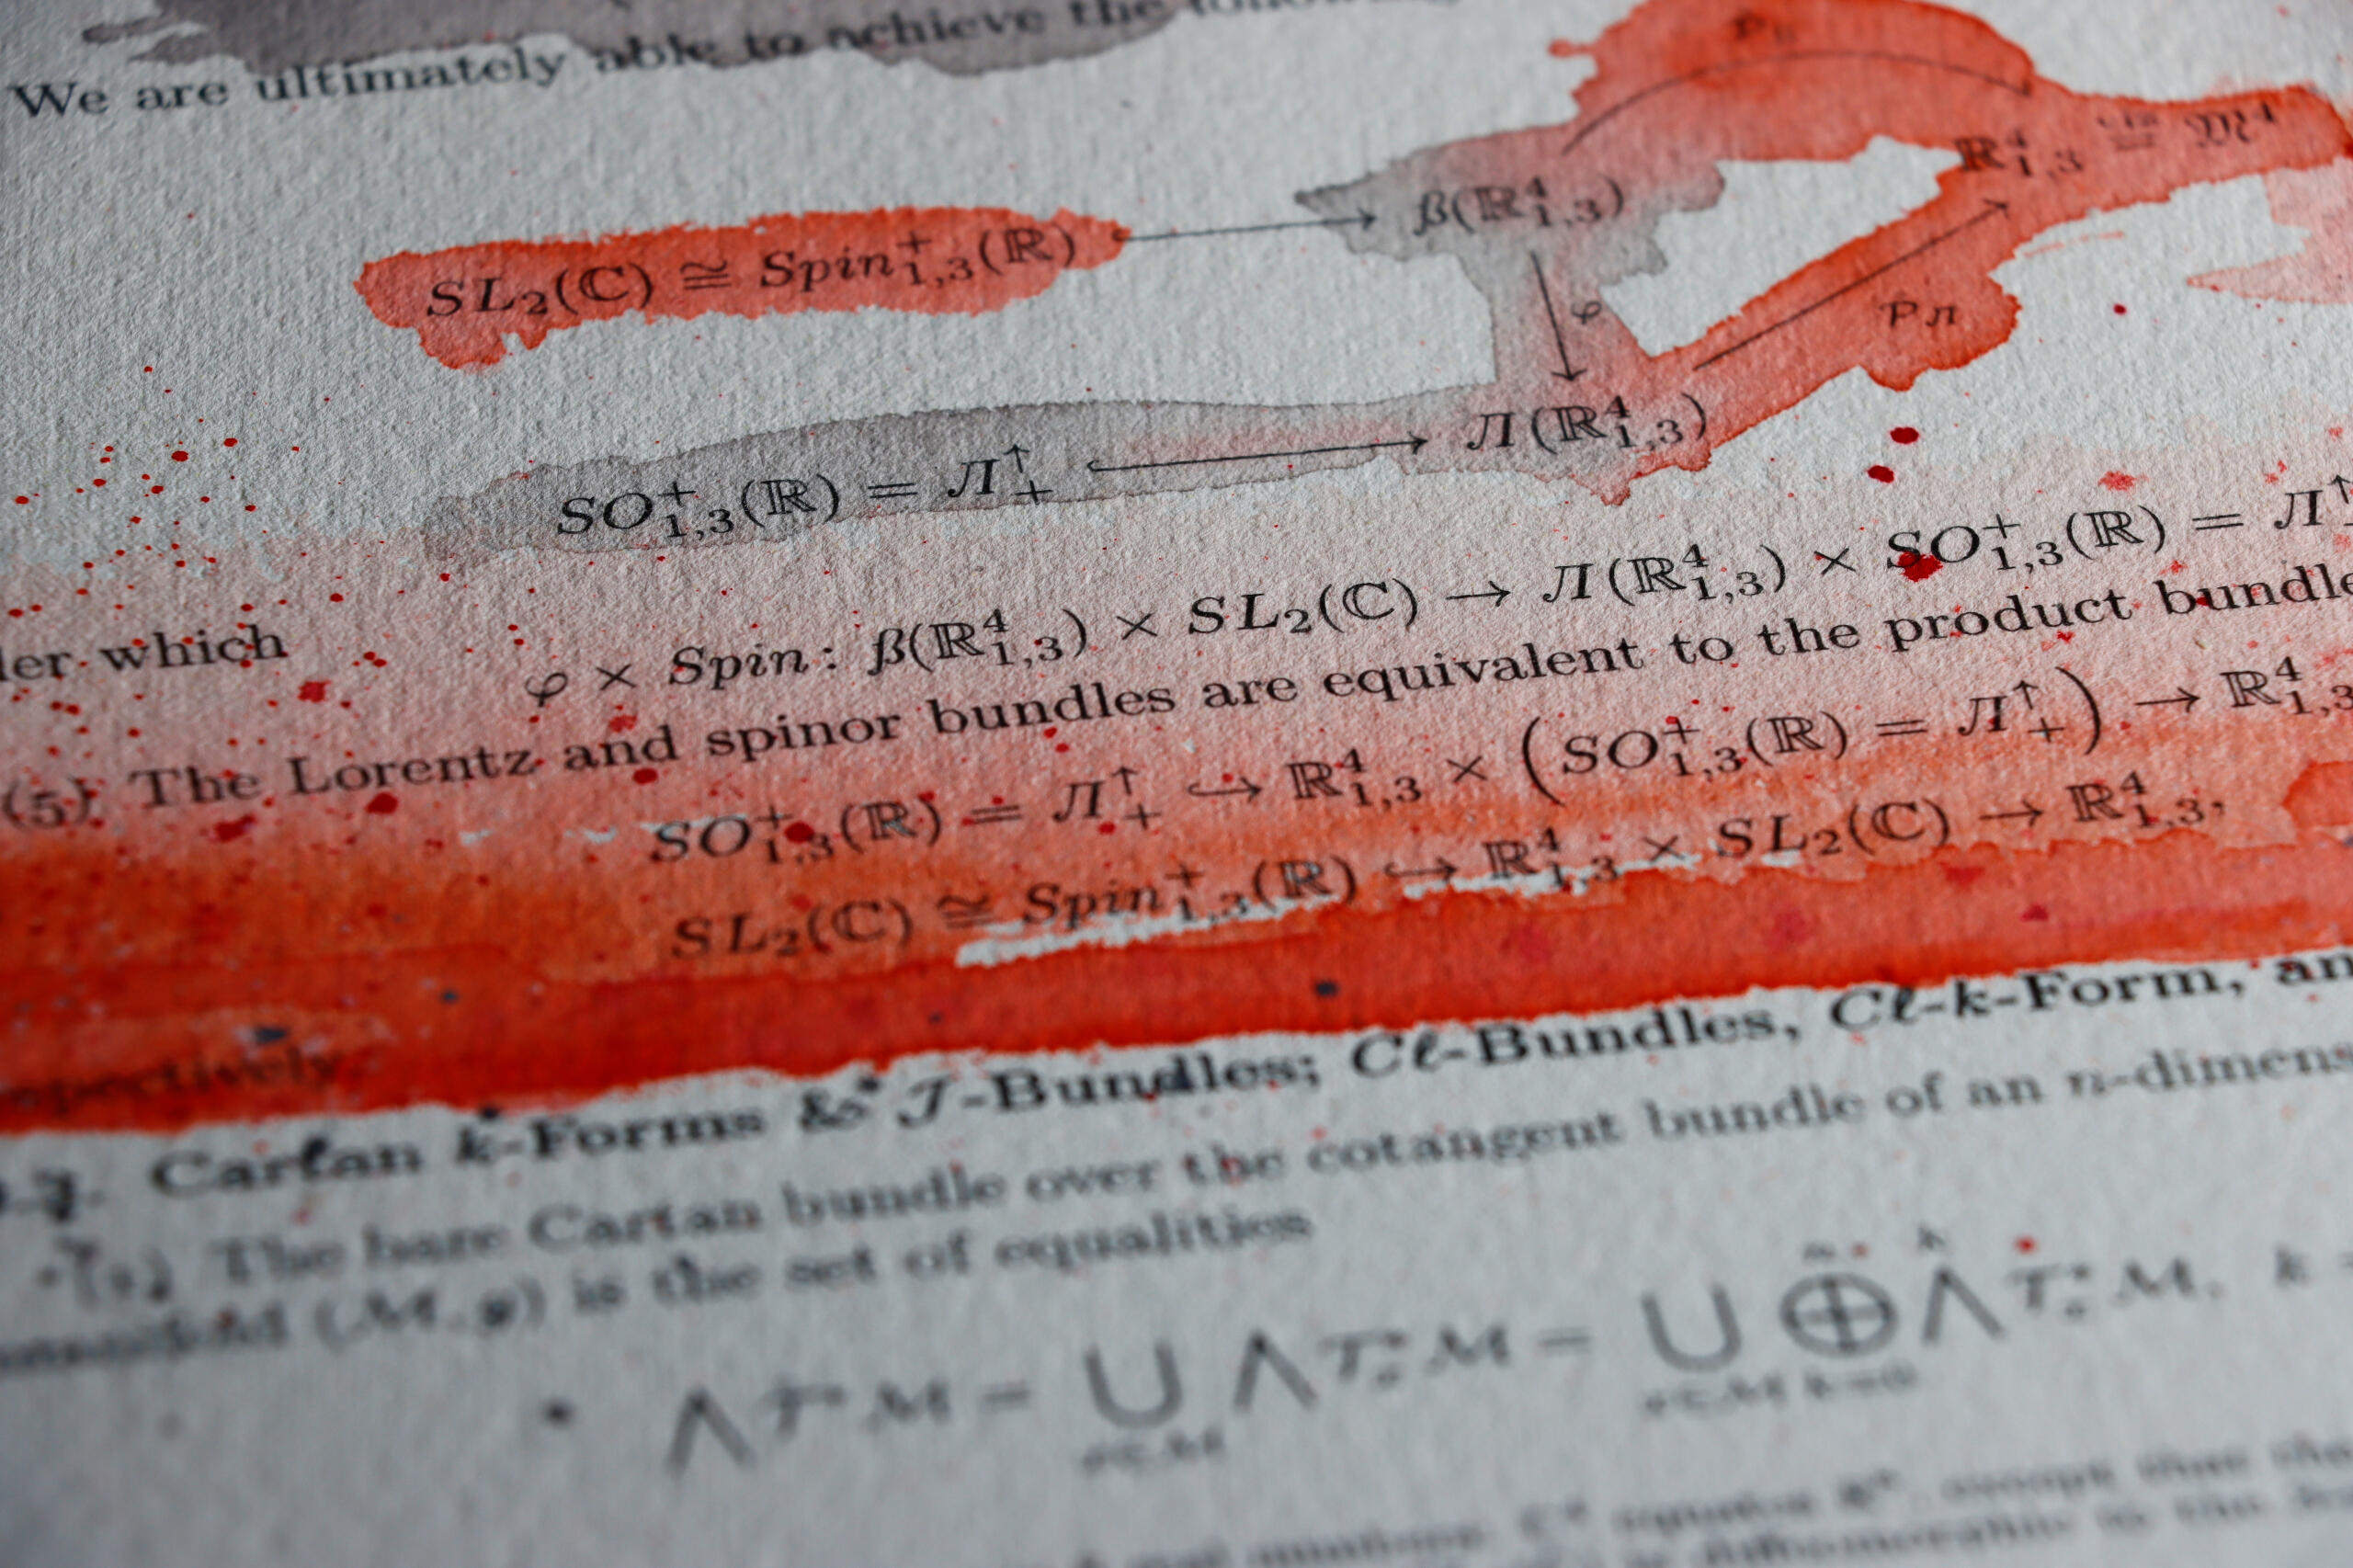 We are ultimately able to achieve the following
R⁴₁,₃ ≅ 𝔐⁴
SL₂(ℂ) ≅ Spin⁺₁,₃(ℝ) → ß(ℝ⁴₁,₃)
φ
P_Л
SO⁺₁,₃(ℝ) = Л₊↑ ↪ Л(ℝ⁴₁,₃)
which
φ × Spin: ß(ℝ⁴₁,₃) × SL₂(ℂ) → Л(ℝ⁴₁,₃) × SO⁺₁,₃(ℝ) = Л₊↑
(5) The Lorentz and spinor bundles are equivalent to the product bundle
SO⁺₁,₃(ℝ) = Л₊↑ ↪ ℝ⁴₁,₃ × (SO⁺₁,₃(ℝ) = Л₊↑) → ℝ⁴₁,₃
SL₂(ℂ) ≅ Spin⁺₁,₃(ℝ) ↪ ℝ⁴₁,₃ × SL₂(ℂ) → ℝ⁴₁,₃,
pectively
Cartan k-Forms & J-Bundles; Cℓ-Bundles, Cℓ-k-Form, an
The bare Cartan bundle over the cotangent bundle of an n-dimens
(M, g) is the set of equalities
⋀T*M = ⋃ ⋀T*M = ⋃ ⊕ ⋀ T*M, k =